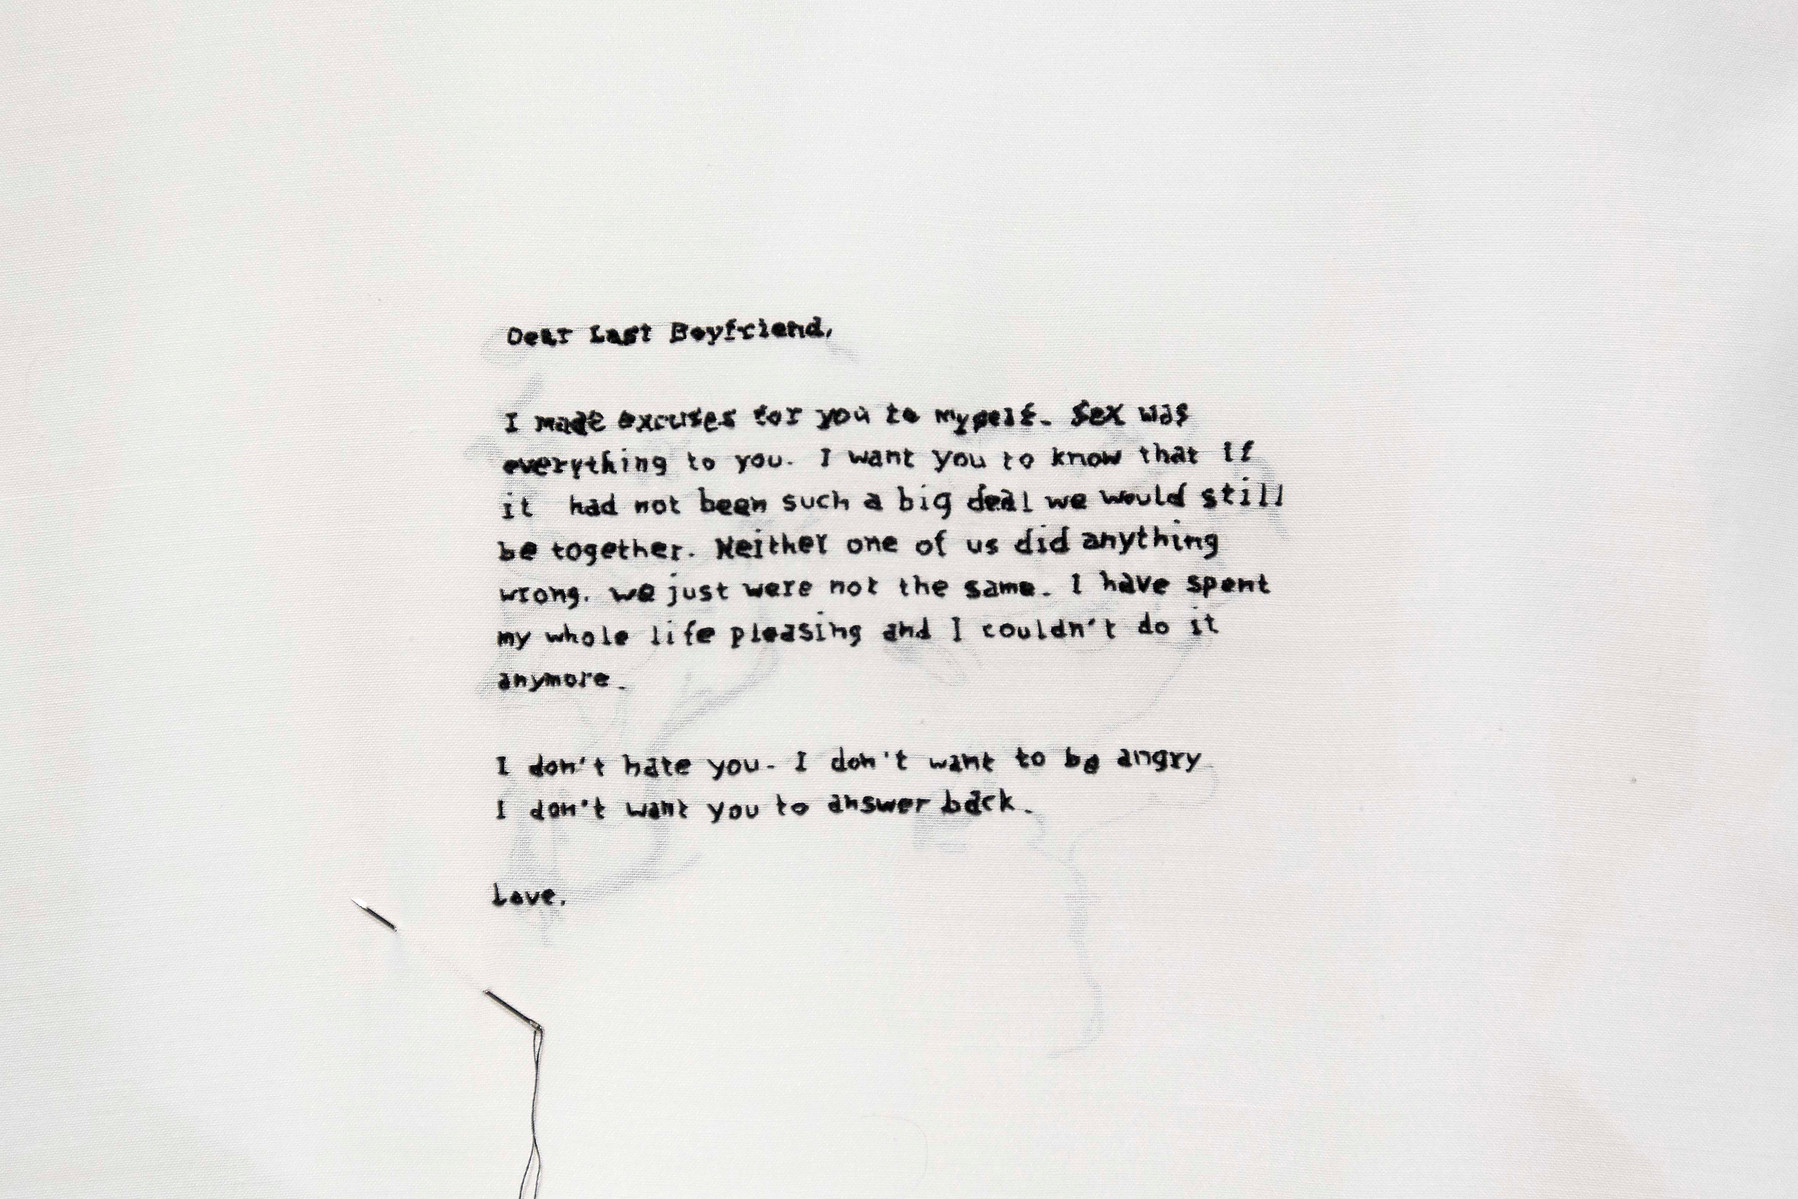 Dear Last Boyfriend,
I made excuses for you to myself. Sex was
everything to you. I want you to know that if
it had not been such a big deal we would still
be together. Neither one of us did anything
wrong. we just were not the same. I have spent
my whole life pleasing and I couldn't do it
anymore.
I don't hate you. I don't want to be angry
I don't want you to answer back.
Love,